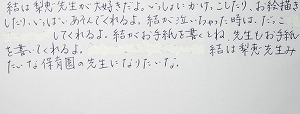 結は梨恵先生が大好きだよ。いっしょにかけっこしたり、お絵描き
したり、いっぱいあそんでくれるよ。結が泣いちゃった時は、だっこ
してくれるよ。結がお手紙を書くとね、先生もお手紙
を書いてくれるよ。 結は梨恵先生み
たいな保育園の先生になりたいな。